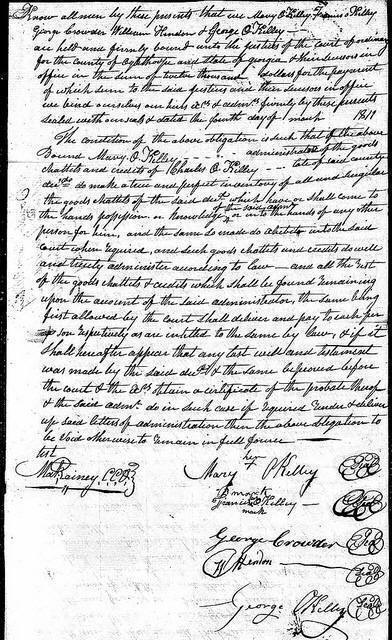 Know all men by these presents that we Mary O Kelley Francis O Kelley
George Crowder William Hendon & George O'Kelley
are held and firmly bound unto the Justices of the court of ordinary
for the County of Oglethorpe and State of georgia & their successors in
office in the sum of twelve thousand dollars for the payment
of which sum to the said Justices and their successors in office
we bind ourselves our heirs &
sealed with our seals & dated the fourth day of March 1811
The condition of the above obligation is such that if the above
Bound Mary O. Kelley administrator of the goods
chattels and credits of Charles O. Kelley late of said county
decd do make a true and perfect inventory of all and singular
the goods chattels of the said decd which have or shall come to
the hands possession or knowledge of the said adm or into the hands of any other
person for him, and the same so made do exhibit into the said
court when required, and such goods chattels and credits do well
and truly administer according to law — and all the rest
of the goods chattels & credits which shall be found remaining
upon the account of the said administrator, the same being
first allowed by the court shall deliver and pay to such per
son respectively as are intitled to the same by law, & if it
shall hereafter appear that any last will and testament
was made by the said decd & the same be proved before
the court & the obtain a certificate of the probate thereof
& the said admr do in such case if required render & deliver
up said letters of administration then the above obligation to
be Void otherwise to remain in full force
test
Mat Rainey C.C.O.
Mary her + mark O'Kelley Seal
Francis O Kelley mark Seal
George Crowder Seal
W Hendon Seal
George O'Kelley Seal